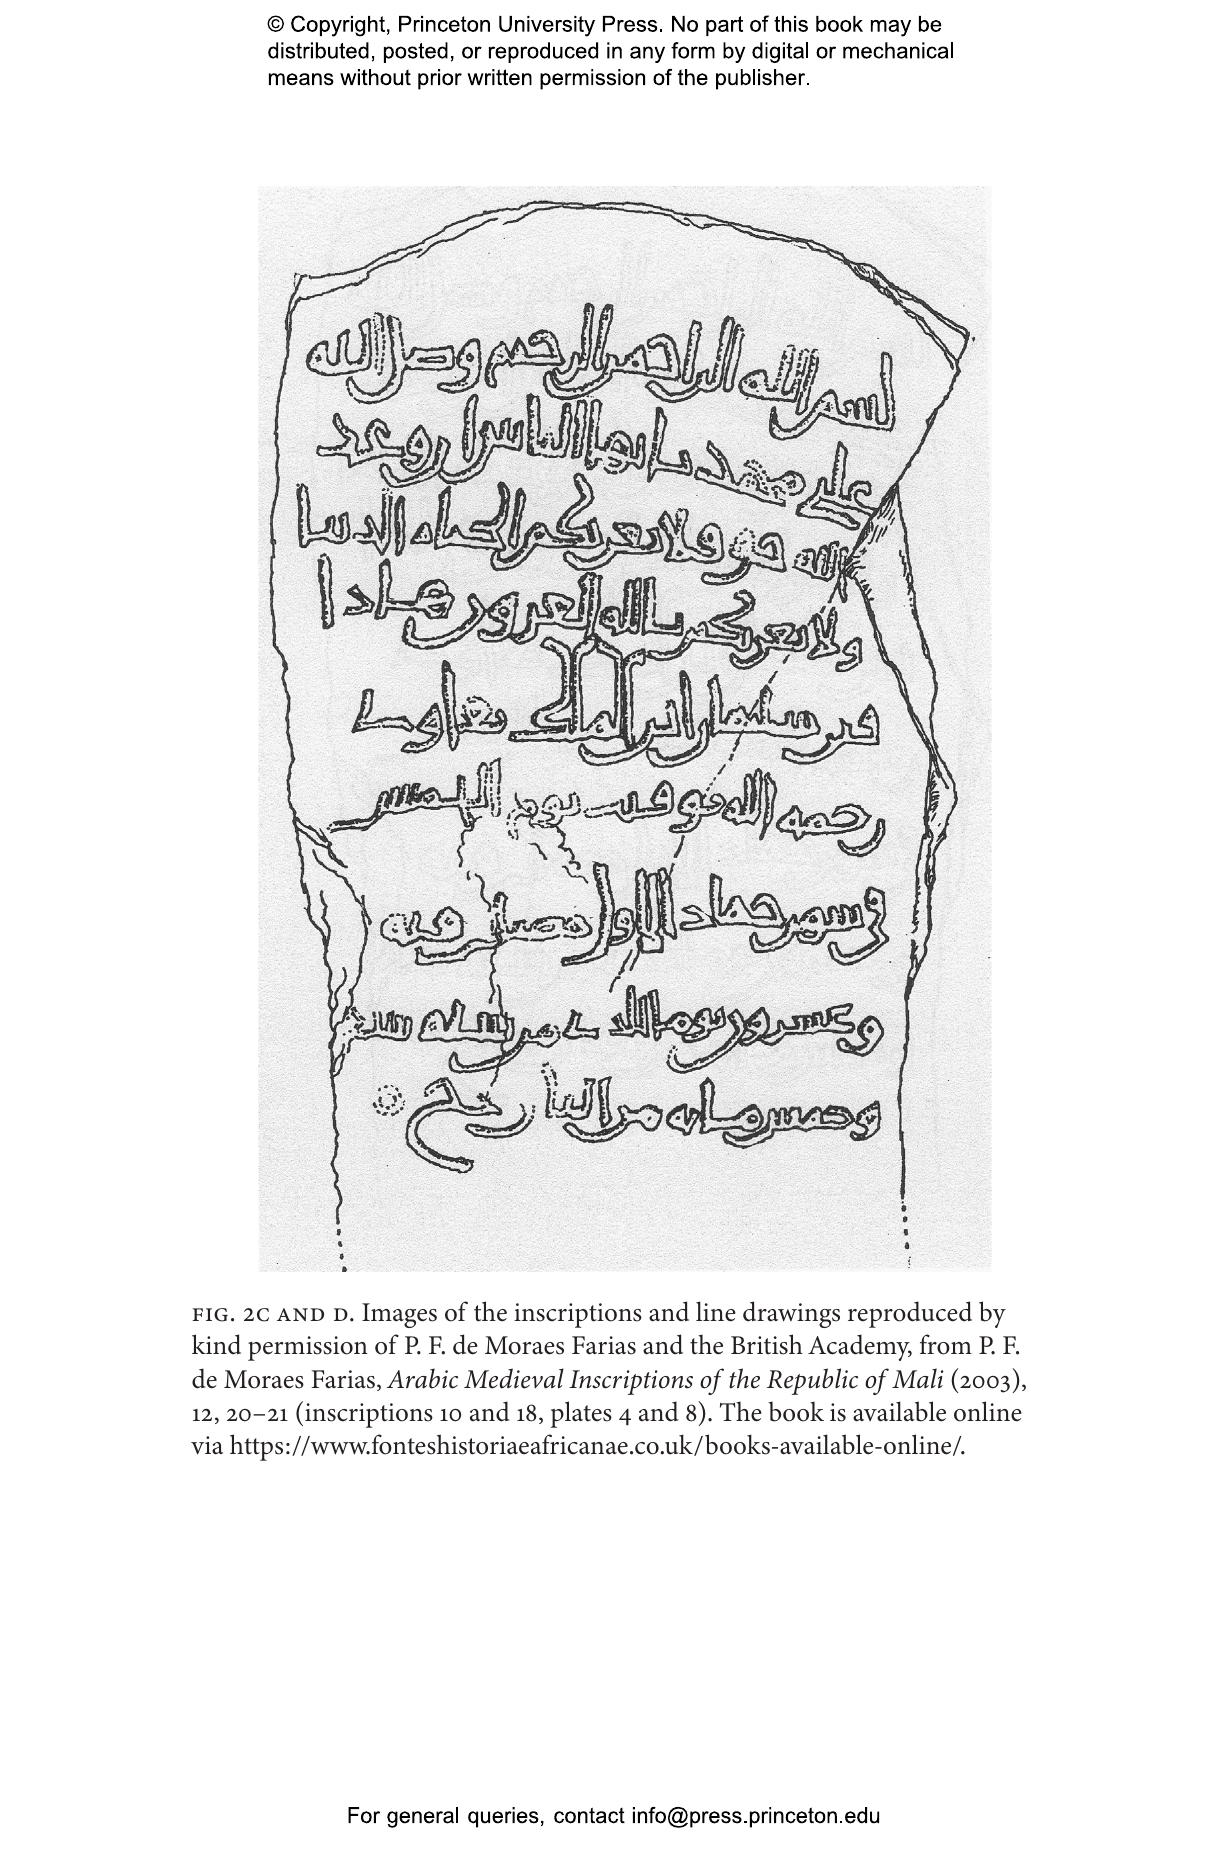 © Copyright, Princeton University Press. No part of this book may be
distributed, posted, or reproduced in any form by digital or mechanical
means without prior written permission of the publisher.
الله الرحمن الرحيم وصل الله
على محمد يا ايها الناس ان وعد
الله حق فلا تغرنكم الحياة الدنيا
ولا يغرنكم بالله الغرور هاذا
قبر
رحمه الله توفيت يوم الخميس
في شهر جماد الاول
وعشرون يوما لله من سنة
وخمس مايه من التاريخ
FIG. 2C AND D. Images of the inscriptions and line drawings reproduced by
kind permission of P. F. de Moraes Farias and the British Academy, from P. F.
de Moraes Farias, Arabic Medieval Inscriptions of the Republic of Mali (2003),
12, 20–21 (inscriptions 10 and 18, plates 4 and 8). The book is available online
via https://www.fonteshistoriaeafricanae.co.uk/books-available-online/.
For general queries, contact info@press.princeton.edu